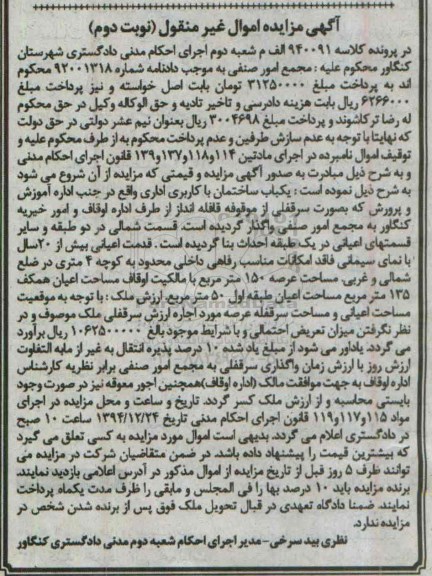 آگهی مزایده اموال غیر منقول (نوبت دوم)
در پرونده کلاسه ۹۴۰۰۹۱ الف م شعبه دوم اجرای احکام مدنی دادگستری شهرستان
کنگاور محکوم علیه : مجمع امور صنفی به موجب دادنامه شماره ۹۲۰۰۱۳۱۸ محکوم
اند به پرداخت مبلغ ۳۱۲۵۰۰۰۰ تومان بابت اصل خواسته و نیز پرداخت مبلغ
۶۲۶۶۰۰۰ ریال بابت هزینه دادرسی و تاخیر تادیه و حق الوکاله وکیل در حق محکوم
له رضا ترکاشوند و پرداخت مبلغ ۳۰۰۴۶۹۸ ریال بعنوان نیم عشر دولتی در حق دولت
که نهایتا با توجه به عدم سازش طرفین و عدم پرداخت محکوم به از طرف محکوم علیه و
توقیف اموال نامبرده در اجرای مادتین ۱۱۴و۱۱۸و۱۳۷و۱۳۹ قانون اجرای احکام مدنی
و به شرح ذیل مبادرت به صدور آگهی مزایده و قیمتی که مزایده از آن شروع می شود
به شرح ذیل نموده است : یکباب ساختمان با کاربری اداری واقع در جنب اداره آموزش
و پرورش که بصورت سرقفلی از موقوفه قافله انداز از طرف اداره اوقاف و امور خیریه
کنگاور به مجمع امور صنفی واگذار گردیده است. قسمت شمالی در دو طبقه و سایر
قسمتهای اعیانی در یک طبقه احداث بنا گردیده است . قدمت اعیانی بیش از ۲۰سال
با نمای سیمانی فاقد امکانات مناسب رفاهی داخلی محدود به کوچه ۴ متری در ضلع
شمالی و غربی. مساحت عرصه ۱۵۰ متر مربع با مالکیت اوقاف مساحت اعیان همکف
۱۳۵ متر مربع مساحت اعیان طبقه اول ۵۰ متر مربع. ارزش ملک : با توجه به موقعیت
مساحت اعیانی و مساحت سرقفله عرصه مورد اجاره ارزش سرقفلی ملک موصوف و در
نظر نگرفتن میزان تعریض احتمالی و با شرایط موجود بالغ ۱۰۶۲۵۰۰۰۰۰ ریال برآورد
می گردد. یادآور می شود از مبلغ یاد شده ۱۰ درصد پذیره انتقال به غیر از مابه التفاوت
ارزش روز با ارزش زمان واگذاری سرقفلی به مجمع امور صنفی برابر نظریه کارشناس
اداره اوقاف به جهت موافقت مالک (اداره اوقاف)همچنین اجور معوقه نیز در صورت وجود
بایستی محاسبه و از ارزش ملک کسر گردد. تاریخ و ساعت و محل مزایده در اجرای
مواد ۱۱۵و۱۱۷و۱۱۹ قانون اجرای احکام مدنی تاریخ ۱۳۹۴/۱۲/۲۴ ساعت ۱۰ صبح
در دادگستری اعلام می گردد. بدیهی است اموال مورد مزایده به کسی تعلق می گیرد
که بیشترین قیمت را پیشنهاد داده باشد. در ضمن متقاضیان شرکت در مزایده می
توانند ظرف ۵ روز قبل از تاریخ مزایده از اموال مذکور در آدرس اعلامی بازدید نمایند.
برنده مزایده باید ۱۰ درصد بها را فی المجلس و مابقی را ظرف مدت یکماه پرداخت
نمایند. ضمنا دادگاه تعهدی در قبال تحویل ملک فوق پس از برنده شدن شخص در
مزایده ندارد.
نظری بید سرخی-مدیر اجرای احکام شعبه دوم مدنی دادگستری کنگاور